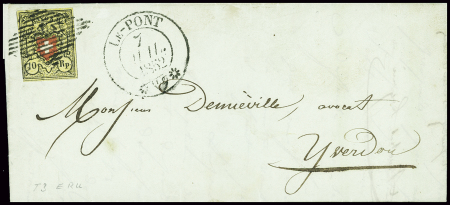 LE-PONT
7
JUIL.
1852
10 Rp
Monsieur Demiéville, avocat
Yverdon